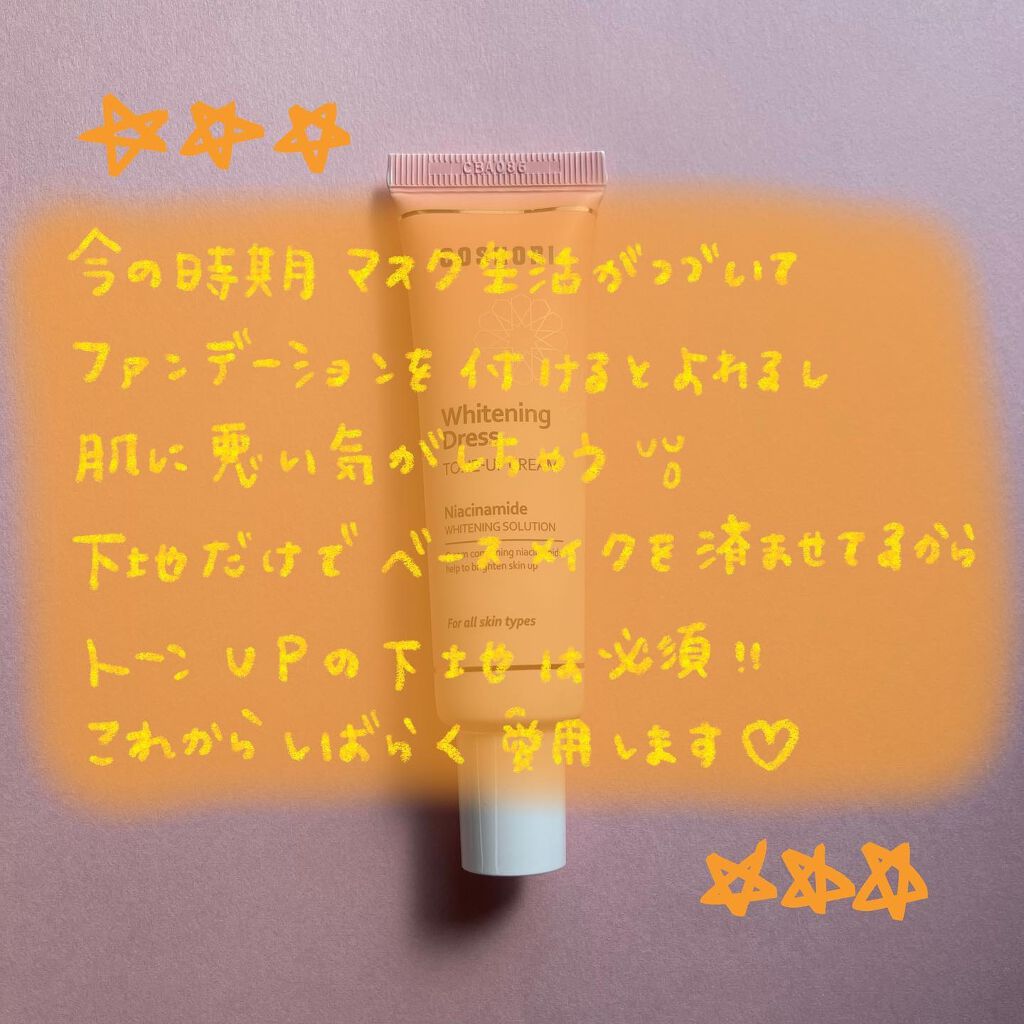 CBA086
COSNORI
今の時期 マスク生活がつづいて
ファンデーションを付けるとよれるし
Whitening
Dress
肌に悪い気がしちゃう
TONE-UP CREAM
Niacinamide
WHITENING SOLUTION
下地だけでベースメイクを済ませてるから
Cream containing niacinamide
help to brighten skin up
For all skin types
トーンUPの下地は必須!!
これからしばらく愛用します♡